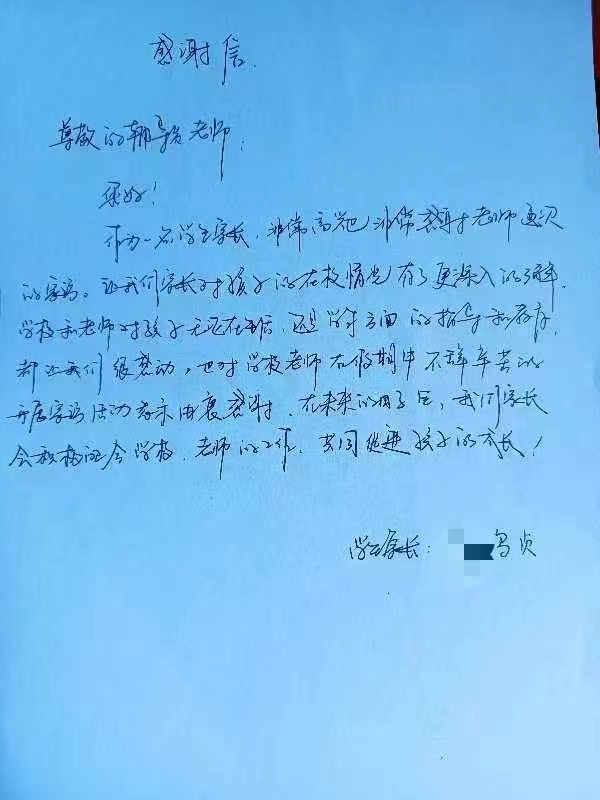 感谢信.
尊敬的辅导员老师:
您好!
作为一名学生家长,非常高兴也非常感谢老师这次
的家访。让我们家长对孩子的在校情况有了更深入的了解.
学校和老师对孩子无论在生活、还是学习方面的指导和教育,
都让我们很感动,也对学校老师在假期中不辞辛苦的
开展家访活动表示由衷感谢. 在未来的日子里,我们家长
会积极配合学校、老师的工作、共同促进孩子的成长!
学生家长: 贞